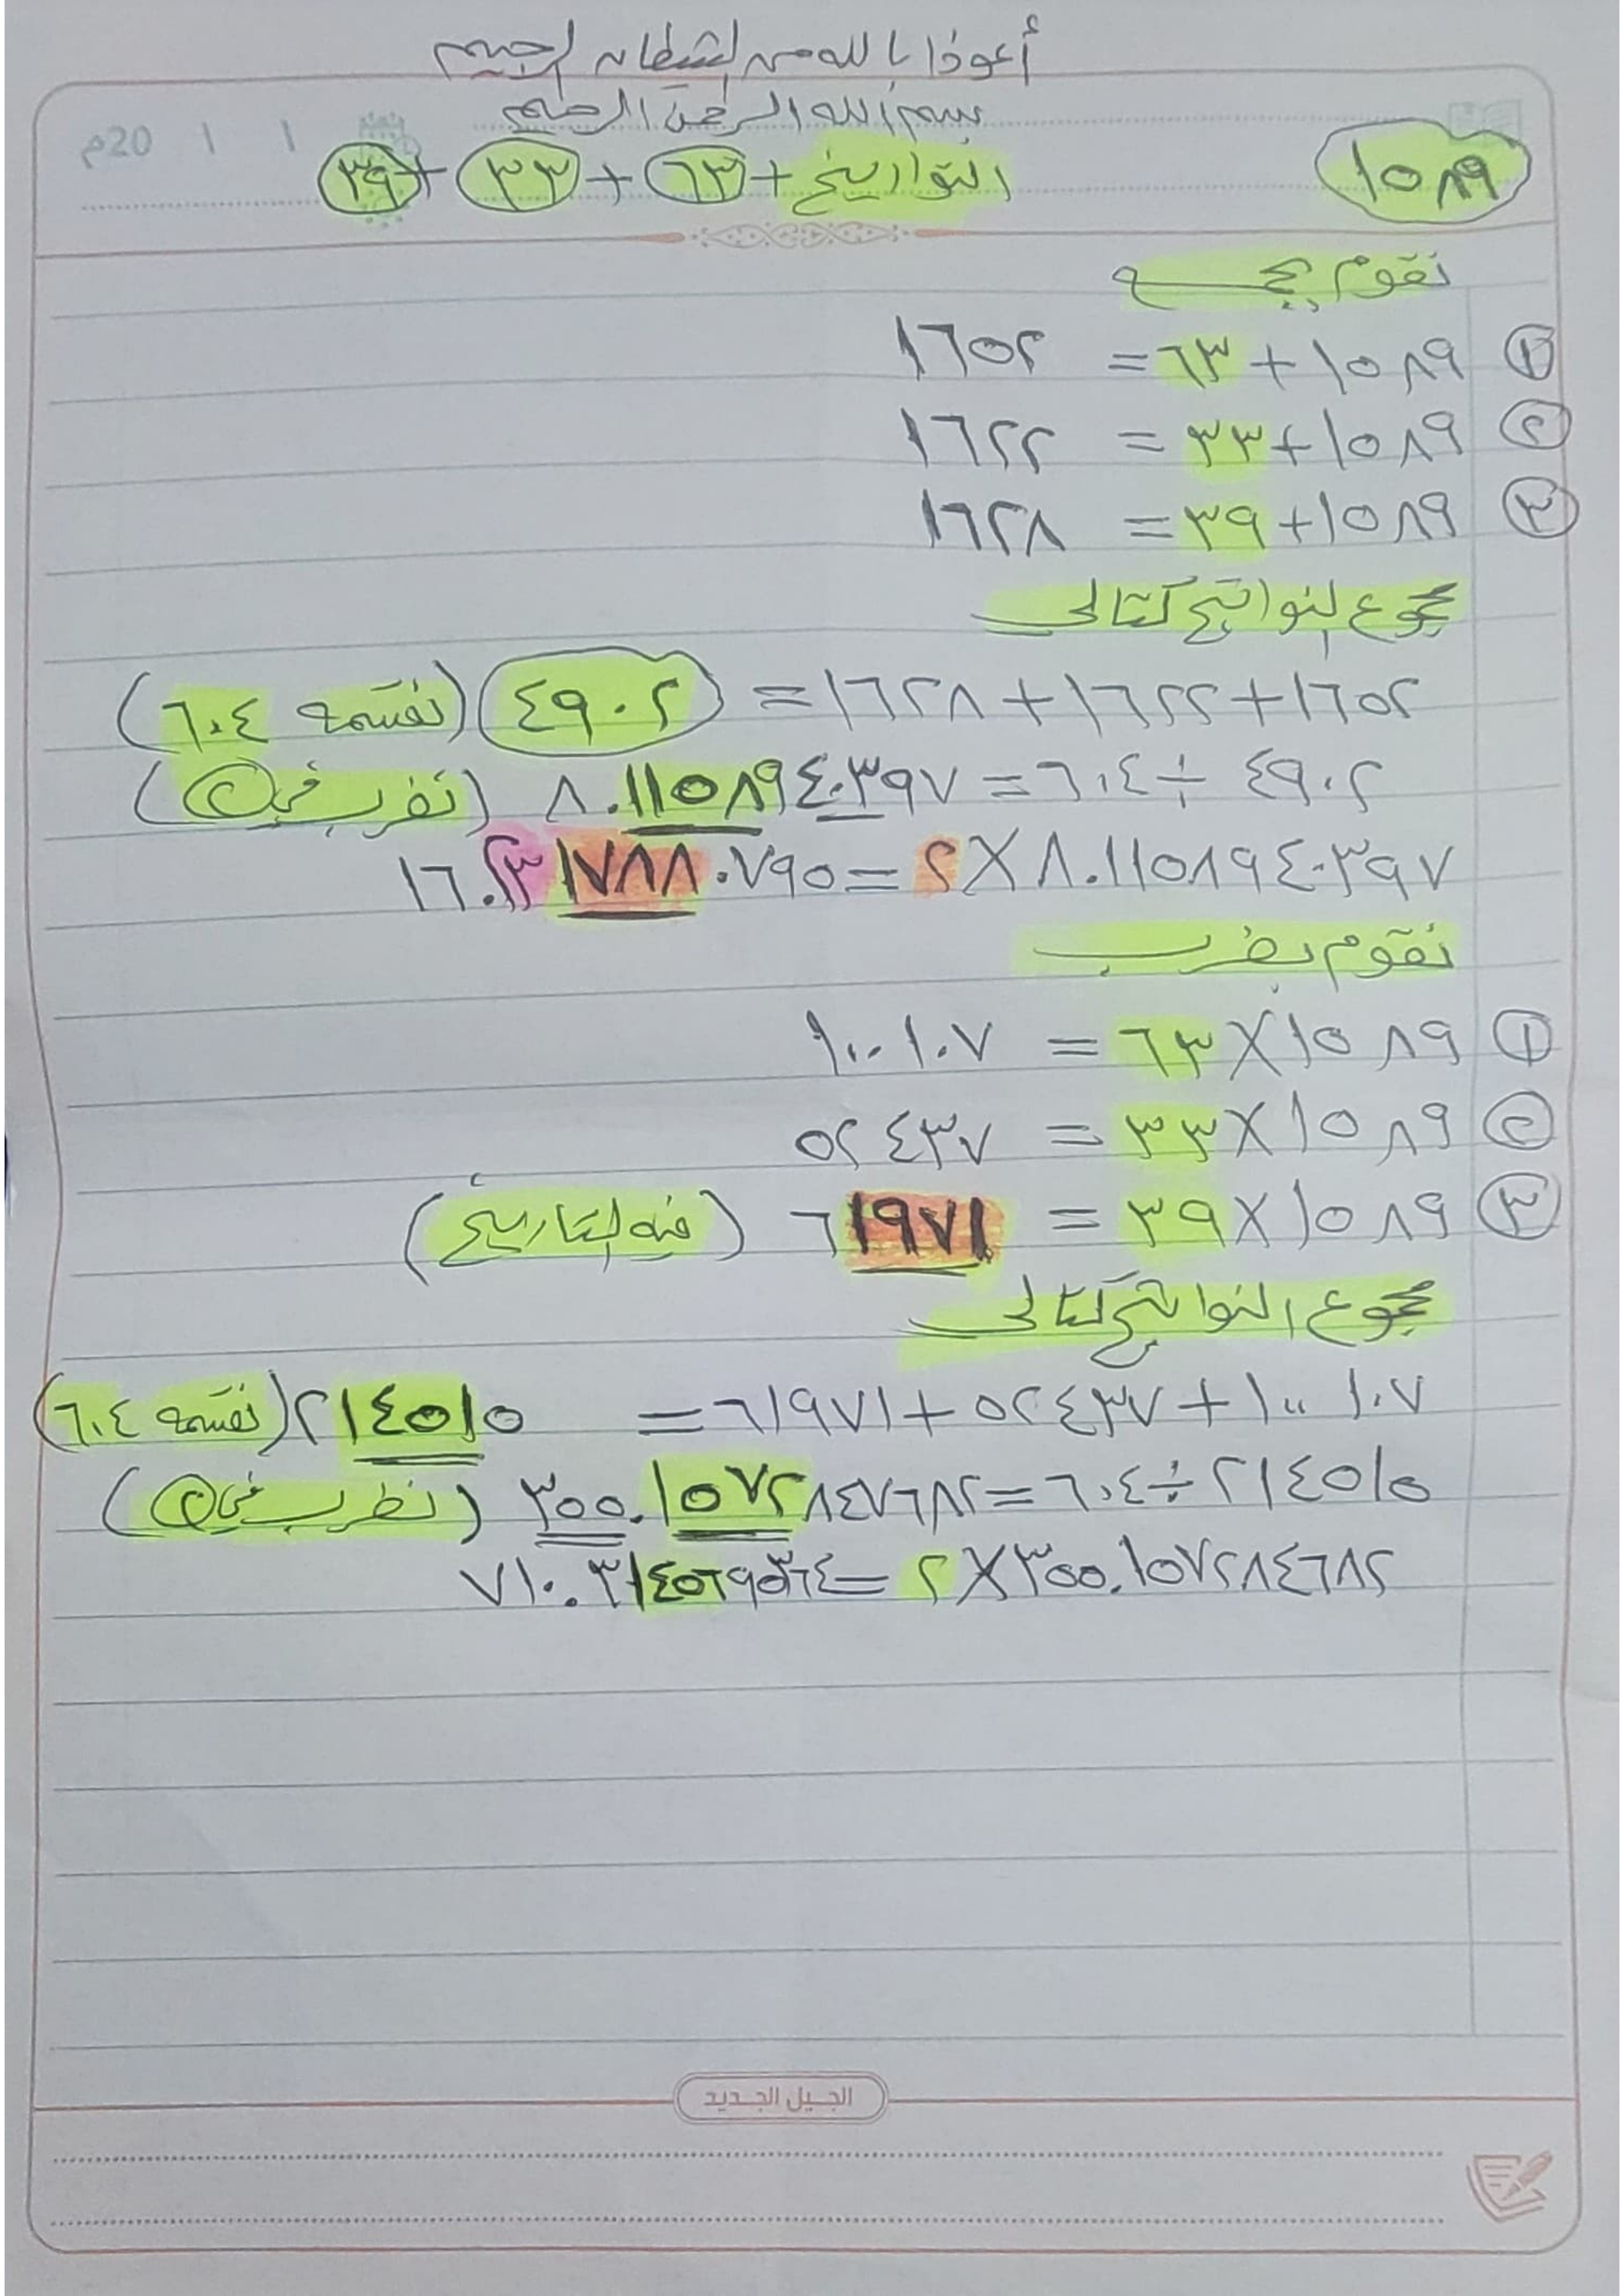 أعوذ بالله من الشيطان الرجيم
بسم الله الرحمن الرحيم
م20 / /
١٥٨٩ التواريخ + ٦٣ + ٣٣ + ٣٩
نقوم بجمع
① ١٥٨٩ + ٦٣ = ١٦٥٢
② ١٥٨٩ + ٣٣ = ١٦٢٢
③ ١٥٨٩ + ٣٩ = ١٦٢٨
مجموع النواتج كتالي
١٦٥٢ + ١٦٢٢ + ١٦٢٨ = ٤٩٠٢ (نقسمه ٦٠٤)
٤٩٠٢ ÷ ٦٠٤ = ٨.١١٥٨٩٤٠٣٩٧ (نضرب في ٢)
٨.١١٥٨٩٤٠٣٩٧ × ٢ = ١٦.٢٣١٧٨٨٠٧٩٥
نقوم بضرب
① ١٥٨٩ × ٦٣ = ١٠٠١٠٧
② ١٥٨٩ × ٣٣ = ٥٢٤٣٧
③ ١٥٨٩ × ٣٩ = ٦١٩٧١ (فيه التاريخ)
مجموع النواتج كتالي
١٠٠١٠٧ + ٥٢٤٣٧ + ٦١٩٧١ = ٢١٤٥١٥ (نقسمه ٦٠٤)
٢١٤٥١٥ ÷ ٦٠٤ = ٣٥٥.١٥٧٢٨٤٧٦٨٢ (نظرب في ٢)
٣٥٥.١٥٧٢٨٤٦٨٢ × ٢ = ٧١٠.٣١٤٥٦٩٥٣٦٤
الجيل الجديد